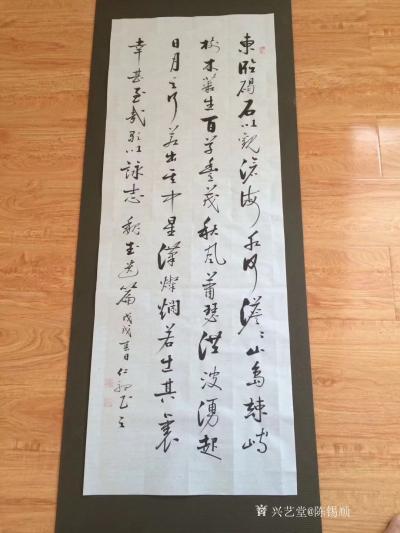 東臨碣石以觀滄海水何澹〻山島竦峙
樹木叢生百草豐茂秋風蕭瑟洪波湧起
日月之行若出其中星漢燦爛若出其裏
幸甚至哉歌以詠志 魏武遺篇 戊戌日仁書
兴艺堂@陈锡顺